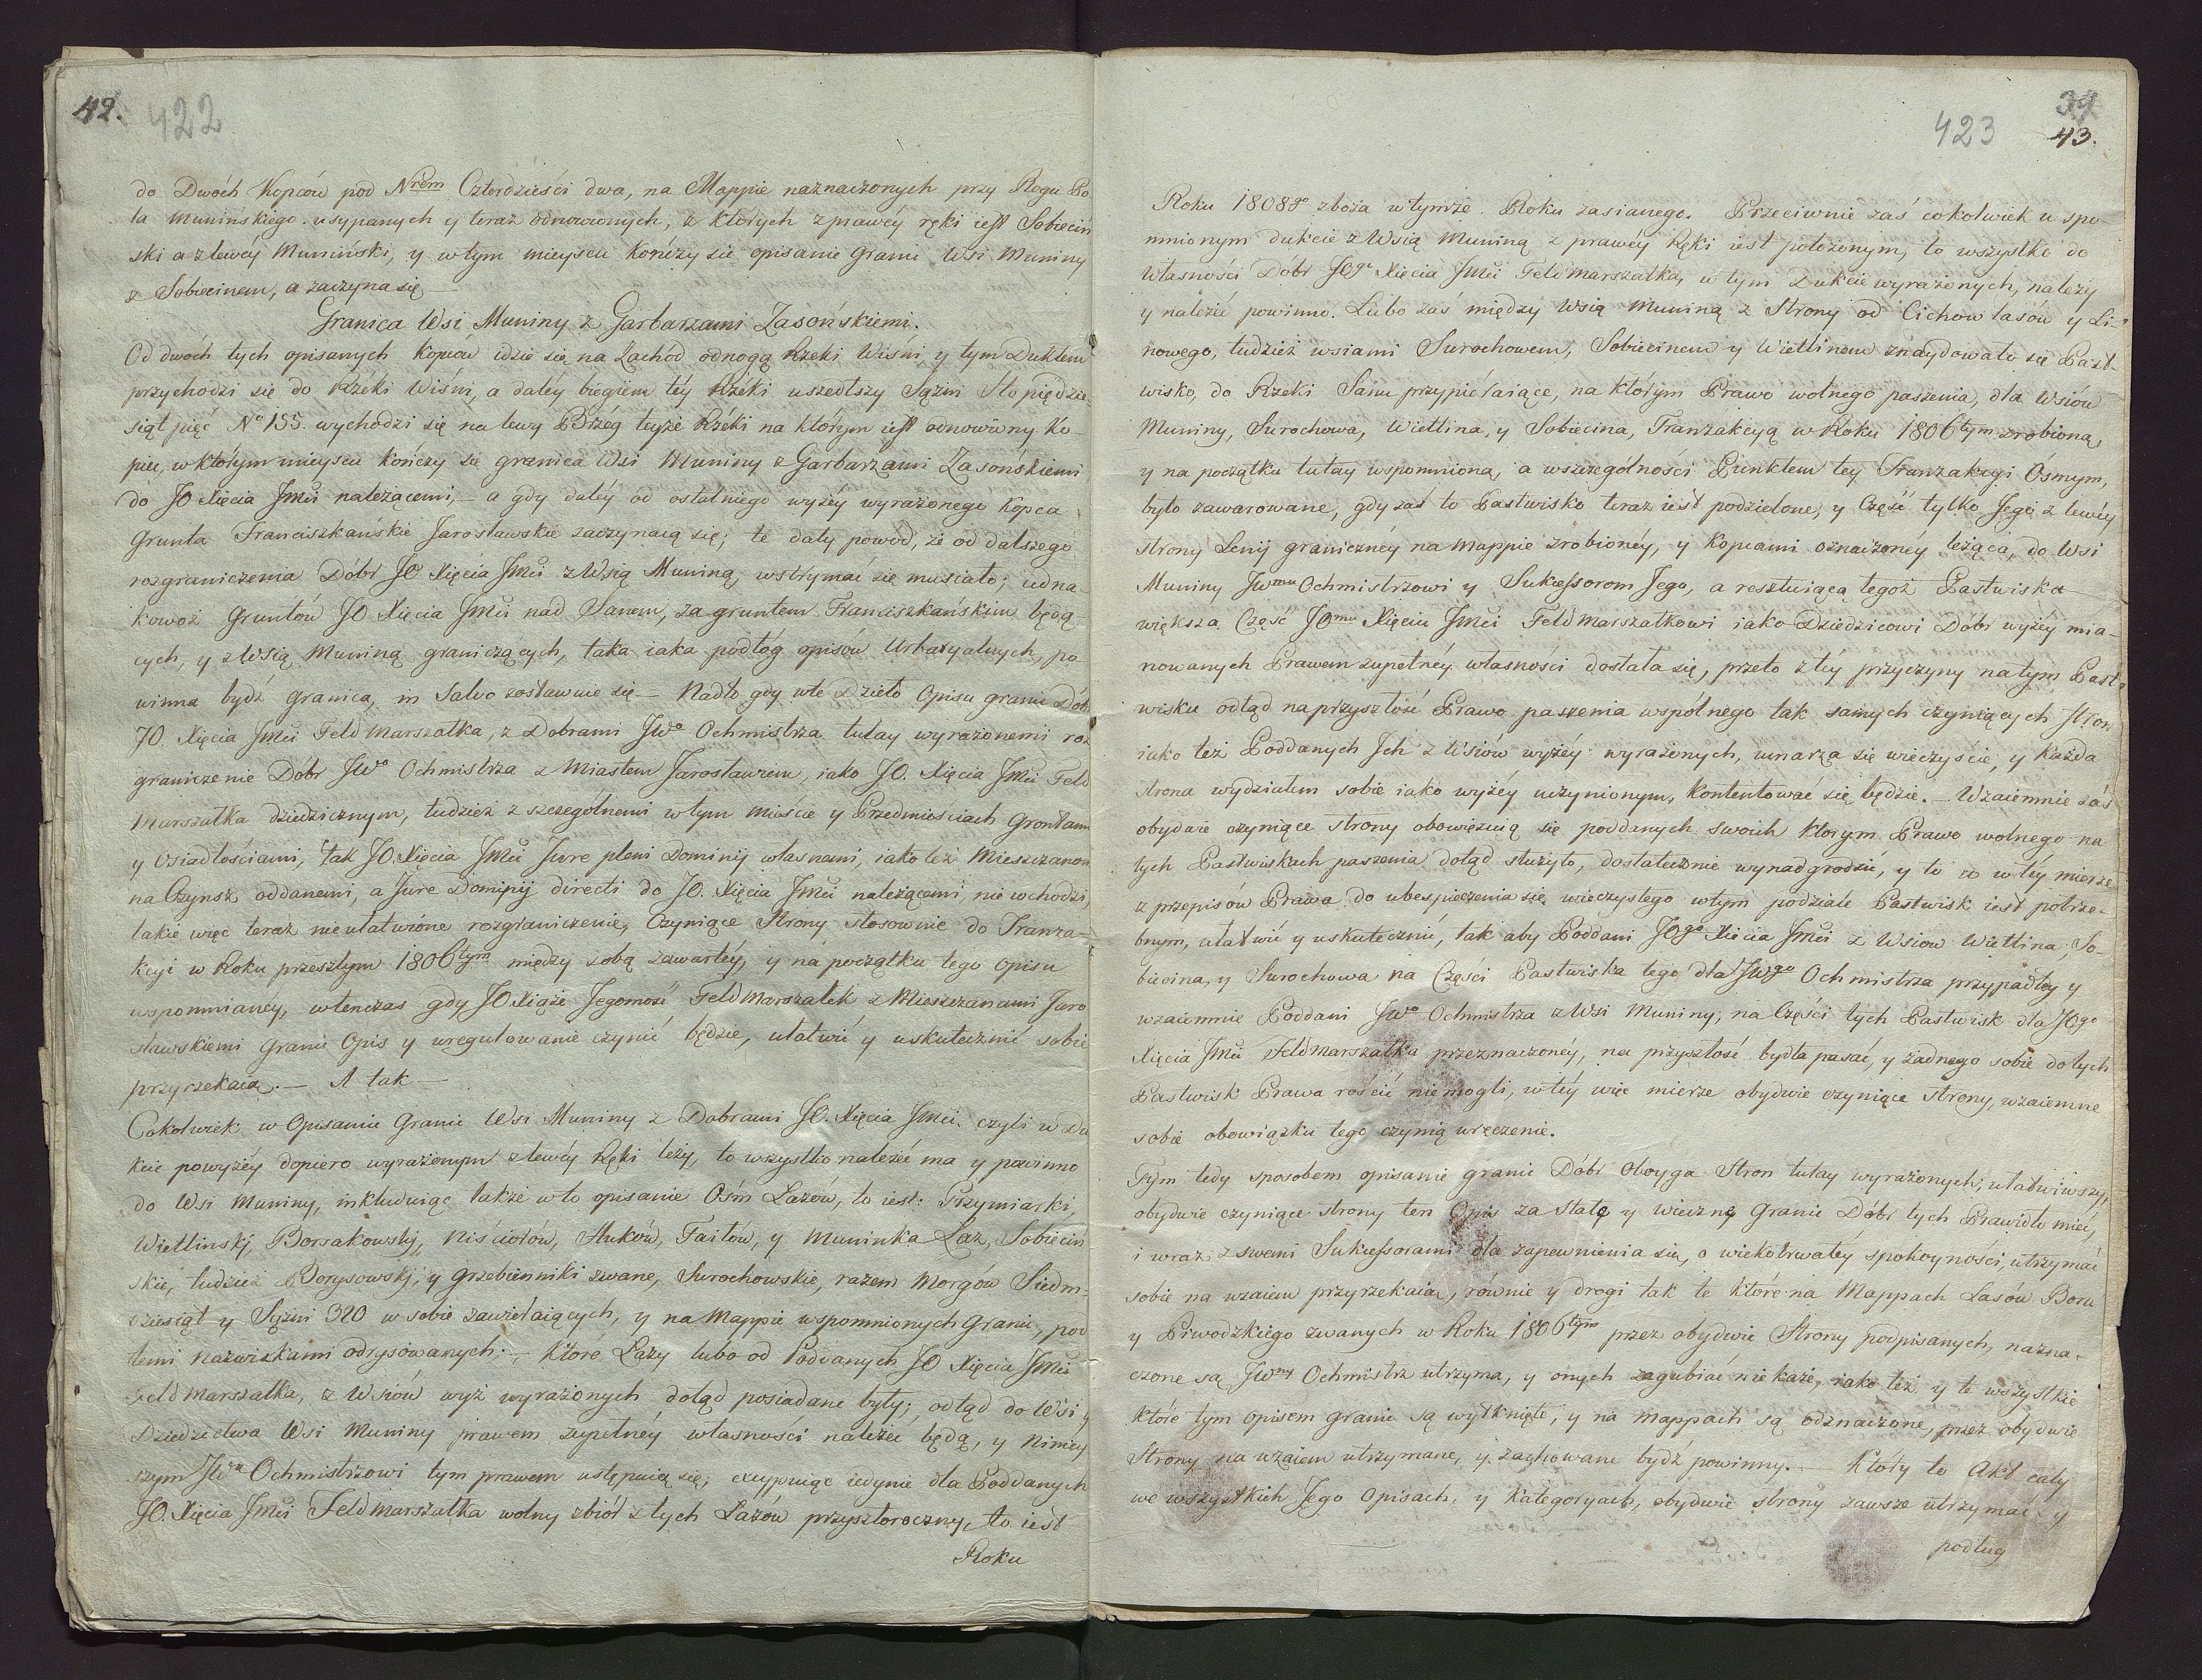 42. 422
do Dwóch Kopców pod Nrem Czterdzieści dwa, na Mappie naznaczonych przy Rogu Po
la Munińskiego usypanych y teraz odnowionych, z których z prawéy ręki iest Sobieciń
ski a z lewéy Muniński, y w tym mieyscu kończy się opisanie Granic Wsi Muniny
z Sobiecinem, a zaczyna się —
Granica Wsi Muniny z Garbarzami Zasońskiemi.
Od dwóch tych opisanych Kopców idzie się na Zachód odnogą Rzeki Wiśni, y tym Duktem
przychodzi się do Rzéki Wiśni, a daléy biegiem téy Rzéki uszedłszy Sążni Sto pięćdzie-
siąt pięć No 155. wychodzi się na lewy Brzég teyże Rzéki na którym iest odnowiony Ko-
piec, w którym mieyscu kończy się granica Wsi Muniny z Garbarzami Zasońskiemi
do JO Xięcia JMci należącemi, — a gdy daléy od ostatniego wyżéy wyrażonego Kopca
Grunta Franciszkańskie Jarosławskie zaczynaią się; te dały powód, że od dalszego
rozgraniczenia Dóbr JO Xięcia JMci z Wsią Muniną, wstrzymać się musiało; iedna-
kowoż Gruntów JO Xięcia JMci nad Sanem, za gruntem Franciszkańskim będą
cych, y z Wsią Muniną graniczących, taka iaka podłóg opisów Urbaryalnych, po
winna bydź granica, in Salvo zostawuie się — Nadto gdy w te Dzieło Opisu granic Dób
JO. Xięcia JMci Feld Marszałka, z Dobrami JWo Ochmistrza tutay wyrażonemi roz
graniczenie Dóbr JWo Ochmistrza z Miastem Jarosławiem, iako JO. Xięcia JMci Feld
Marszałka dziedzicznym, tudzież z szczególnemi w tym mieście y Przedmieściach Grontami
y Osiadłościami, tak JO. Xięcia JMci Jure pleni Dominij własnemi, iako też Mieszczanom
na Czynsz oddanemi, a Jure Dominij directi do JO. Xięcia JMci należącemi, nie wchodzi,
takie więc teraz nie ułatwione rozgraniczenie, Czyniące Strony stosownie do Tranza-
kcyi w Roku przeszłym 1806tym między sobą zawartéy, y na początku tego opisu
wspomnianéy, wtenczas gdy JO Xiąże Jegomość Feld Marszałek z Mieszczanami Jaro
sławskiemi granic Opis y uregulowanie czynić będzie, ułatwić y uskutecznić sobie
przyrzekaią. — A tak —
Cokolwiek w Opisanie Granic Wsi Muniny z Dobrami JO. Xięcia JMci, czyli w Du
kcie powyżéy dopiero wyrażonym z lewéy Ręki leży, to wszystko należéć ma y powinno
do Wsi Muniny, inkluduiąc także w to opisanie Ośm Łazów, to iest: Przymiarki,
Wietlinskj, Borsakowskj, Niściorów, Huków, Faitów, y Muninka Łaz, Sobieciń
skie, tudzież Borysowskj, y Grzebienniki zwane, Surochowskie, razem Morgów Siedm-
dziesiąt y Sążni 320 w sobie zawieraiących, y na Mappie wspomnionych Granic, pod
temi nazwiskami odrysowanych; — które Łazy lubo od Poddanych JO Xięcia JMci
Feld Marszałka, z Wsiów wyż wyrażonych dotąd posiadane były; odtąd do Wsi y
Dziedzictwa Wsi Muniny prawem zupełnéy własności należéć będą, y Niniéy
szym JWu Ochmistrzowi tym prawem ustępuią się; excypuiąc iedynie dla Poddanych
JO. Xięcia JMci Feld Marszałka wolny zbiór z tych Łazów przyszłoroczny, to iest
Roku
423 43.
Roku 1808go zboża w tymże Roku zasianego. Przeciwnie zaś cokolwiek w spo-
mnionym dukcie z Wsią Muniną z prawéy Ręki iest położonym, to wszystko do
Własności Dóbr JOgo Xięcia JMci Feld Marszałka, w tym Dukcie wyrażonych, należy
y należéć powinno. Lubo zaś między Wsią Muniną z Strony od Cichow lasów y Li-
nowego, tudzież wsiami Surochowem, Sobiecinem y Wietlinem znaydowało się Past-
wisko, do Rzeki Sanu przypiéraiące, na którym Prawo wolnego paszenia, dla Wsiów
Muniny, Surochowa, Wietlina, y Sobiecina, Tranzakcyą w Roku 1806tym zrobioną,
y na początku tutay wspomnioną, a wszczególności Punktem téy Tranzakcyi Ósmym,
było zawarowane, gdy zaś to Pastwisko teraz iest podzielone, y Część tylko Jego z lewéy
strony Lenij granicznéy na Mappie zrobionéy, y Kopcami oznaczonéy leżąca, do Wsi
Muniny JWmu Ochmistrzowi y Sukcessorom Jego, a resztuiąca tegoż Pastwiska
większa Część JOmu Xięciu JMci Feld Marszałkowi iako Dziedzicowi Dóbr wyżéy mia-
nowanych Prawem zupełnéy własności dostała się, przeto z téy przyczyny na tym Past-
wisku odtąd na przyszłość Prawo paszenia wspólnego tak samych czyniących Stron
iako też Poddanych Jch z Wsiów wyżéy wyrażonych, umarza się wieczyście, y Każda
strona wydziałem sobie iako wyżéy uczynionym, kontentować się będzie. — Wzaiemnie zaś
obydwie czyniące strony obowięzuią się poddanych swoich którym Prawo wolnego na
tych Pastwiskach paszenia dotąd służyło, dostatecznie wynadgrodzić, y to co w téy mierze
z przepisów Prawa do ubespieczenia się wieczystego w tym podziale Pastwisk iest potrze-
bnym, ułatwić y uskutecznić, tak aby Poddani JOgo Xięcia JMci z Wsiow Wietlina, So-
biecina, y Surochowa na Części Pastwiska tego dla JWgo Ochmistrza przypadłéy y
wzaiemnie Poddani JWo Ochmistrza z Wsi Muniny, na Części tych Pastwisk dla JOgo
Xięcia JMci Feld Marszałka przeznaczonéy, na przyszłość bydła pasać, y żadnego sobie do tych
Pastwisk Prawa rościć niemogli, w téy więc mierze obydwie czyniące strony, wzaiemne
sobie obowiązku tego czynią wręczenie.
Tym tedy sposobem opisanie granic Dóbr Oboyga Stron tutay wyrażonych, ułatwiwszy,
obydwie czyniące strony ten Opis za Stałę y wieczne Granic Dóbr tych Prawidło mieć,
i wraz z swemi Sukcessorami dla zapewnienia się, o wiekotrwałéy spokoyności, utrzymać
sobie na wzaiem przyrzekaią, równie y drogi tak te które na Mappach Lasów Boru
y Piwodzkiego zwanych w Roku 1806tym przez obydwie Strony podpisanych, nazna-
czone są JWny Ochmistrz utrzyma, y onych zagubiać nie każe, iako też y te wszystkie
które tym opisem granic są wytknięte, y na mappach są odznaczone, przez obydwie
Strony na wzaiem utrzymane, y zachowane bydź powinny. — Który to Akt cały
we wszystkich Jego Opisach, y Kategoryach, obydwie strony zawsze utrzymać y
podług